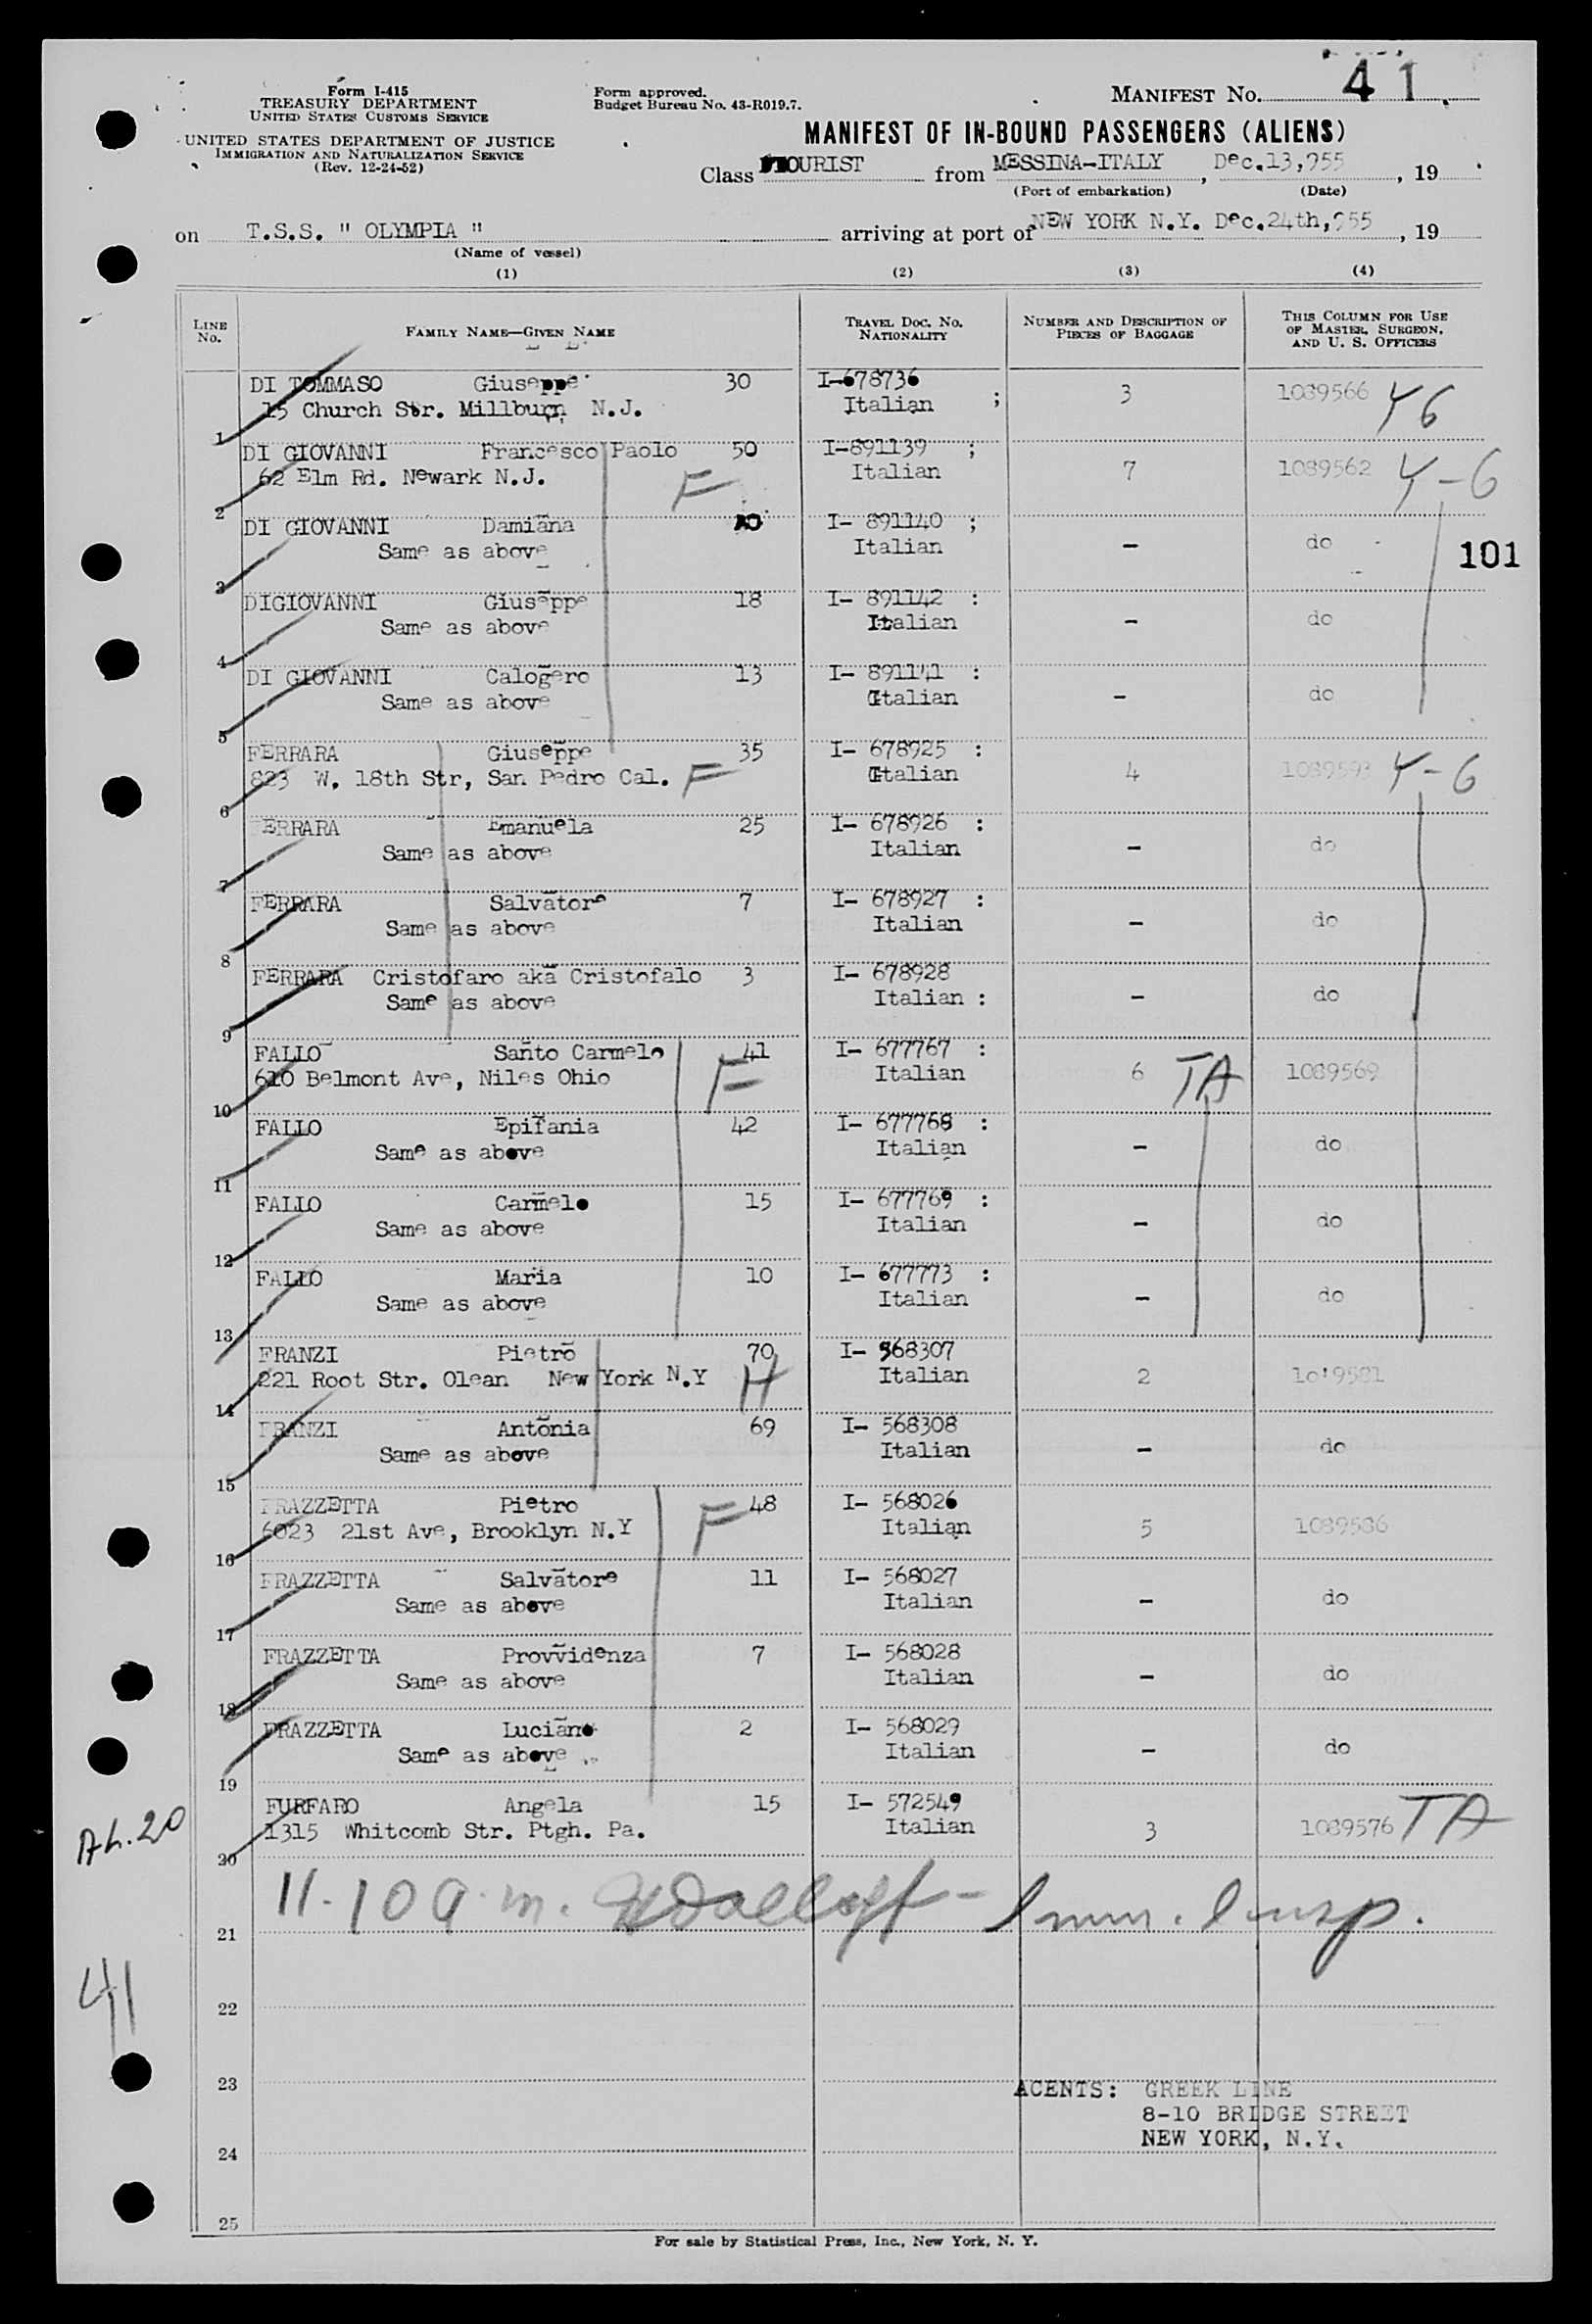 Form I-415
TREASURY DEPARTMENT
UNITED STATES CUSTOMS SERVICE
UNITED STATES DEPARTMENT OF JUSTICE
IMMIGRATION AND NATURALIZATION SERVICE
(Rev. 12-24-52)
Form approved.
Budget Bureau No. 43-R019.7.
MANIFEST NO. 41
MANIFEST OF IN-BOUND PASSENGERS (ALIENS)
Class TOURIST from MESSINA-ITALY, Dec.13,955, 19
(Port of embarkation) (Date)
on T.S.S. " OLYMPIA " arriving at port of NEW YORK N.Y. Dec.24th,955, 19
(Name of vessel)
(1) (2) (3) (4)
LINE NO. FAMILY NAME—GIVEN NAME TRAVEL DOC. NO. NATIONALITY NUMBER AND DESCRIPTION OF PIECES OF BAGGAGE THIS COLUMN FOR USE OF MASTER, SURGEON, AND U. S. OFFICERS
DI TOMMASO Giuseppe 30 I-678736
15 Church Str. Millburn N.J. Italian ; 3 1089566 Y6
1
DI GIOVANNI Francesco Paolo 50 I-891139 ;
62 Elm Rd. Newark N.J. F Italian 7 1089562 Y-6
2
DI GIOVANNI Damiana I- 891140 ;
Same as above Italian - do - 101
3
DIGIOVANNI Giuseppe 18 I- 891142 :
Same as above Italian - do
4
DI GIOVANNI Calogero 13 I- 891141 :
Same as above Italian - do
5
FERRARA Giuseppe 35 I- 678925 :
823 W. 18th Str, San Pedro Cal. F Italian 4 1089593 Y-6
6
FERRARA Emanuela 25 I- 678926 :
Same as above Italian - do
7
FERRARA Salvatore 7 I- 678927 :
Same as above Italian - do
8
FERRARA Cristofaro aka Cristofalo 3 I- 678928
Same as above Italian : - do
9
FALLO Santo Carmelo 41 I- 677767 :
610 Belmont Ave, Niles Ohio F Italian 6 TA 1089569
10
FALLO Epifania 42 I- 677768 :
Same as above Italian - do
11
FALLO Carmelo 15 I- 677769 :
Same as above Italian - do
12
FALLO Maria 10 I- 677773 :
Same as above Italian - do
13
FRANZI Pietro 70 I- 568307
221 Root Str. Olean New York N.Y H Italian 2 1089581
14
FRANZI Antonia 69 I- 568308
Same as above Italian - do
15
FRAZZETTA Pietro 48 I- 568026
6023 21st Ave, Brooklyn N.Y F Italian 5 1089586
16
FRAZZETTA Salvatore 11 I- 568027
Same as above Italian - do
17
FRAZZETTA Provvidenza 7 I- 568028
Same as above Italian - do
18
FRAZZETTA Luciano 2 I- 568029
Same as above Italian - do
19
FURFARO Angela 15 I- 572549
1315 Whitcomb Str. Ptgh. Pa. Italian 3 1089576 TA
20
AL.20
11-10 a.m. Imm. Insp.
21
41
22
23
AGENTS: GREEK LINE
8-10 BRIDGE STREET
NEW YORK, N.Y.
24
25
For sale by Statistical Press, Inc., New York, N. Y.